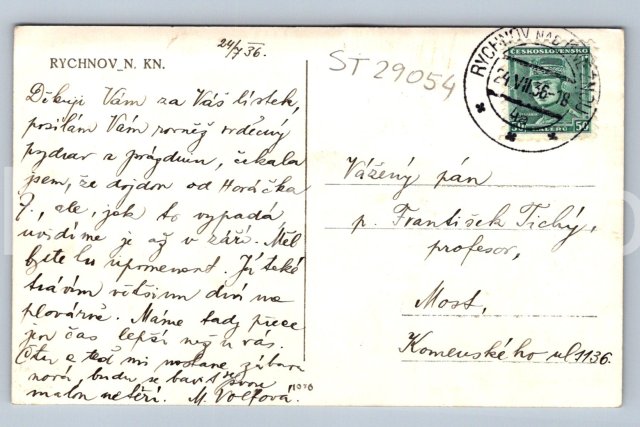 24/7 36.
RYCHNOV_N. KN.
ST 29054
RYCHNOV NAD KNĚŽNOU
24.VII.36-18
4a
ČESKOSLOVENSKO
50 HALÉŘŮ 50
Děkuji Vám za Váš lístek,
posílám Vám rovněž srdečný
pozdrav z prázdnin, čekala
jsem, že dojdou od Horáčka
7., ale, jak to vypadá
uvidíme je až v září. Měl
byste tu upomenout. Já také
trávím většinu dní na
plovárně. Máme tady přece
jen čas lepší než u vás.
a teď mi nastane zábava
nová, budu se bavit se svou
malou neteří. M. Volfová.
Vážený pán
p. František Tichý,
profesor,
Most,
Komenského ul 1136.